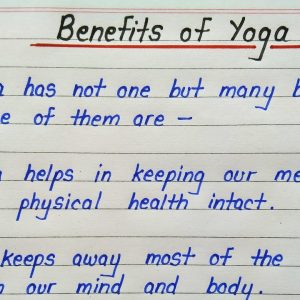 Benefits of Yoga
has not one but many
of them are –
helps in keeping our
physical health intact.
keeps away most of the
our mind and body.